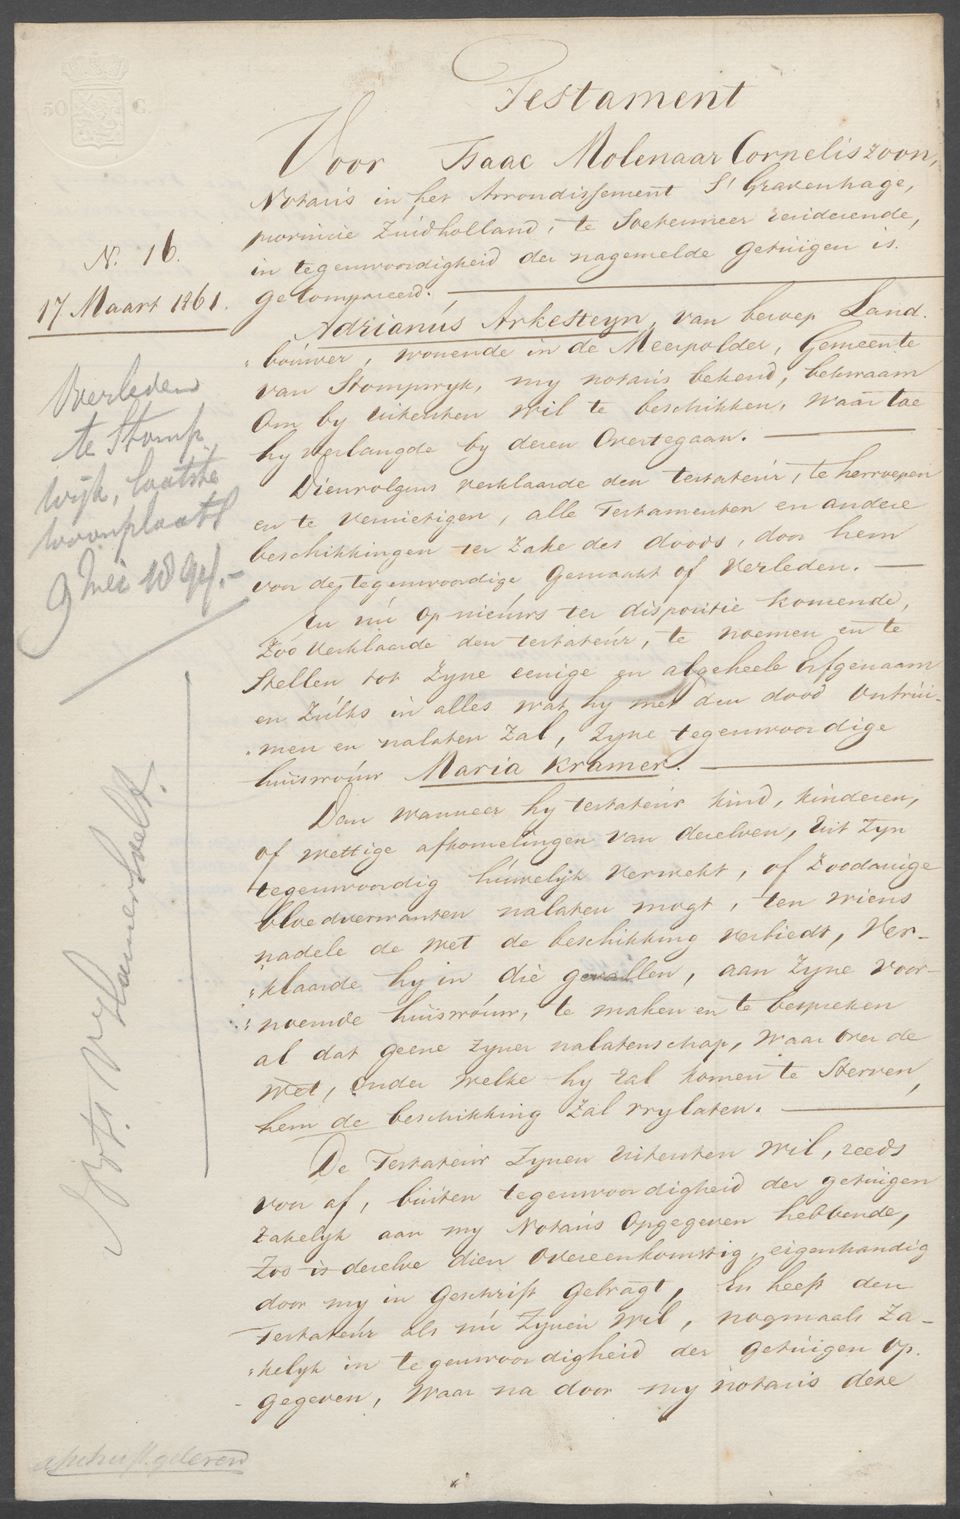 50 C
Testament
Voor Isaac Molenaar Corneliszoon,
Notaris in het Arrondissement S'Gravenhage,
provincie Zuidholland, te Soetermeer residerende,
in tegenwoordigheid der nagemelde getuigen is
gecompareerd.
N. 16.
17 Maart 1861.
Adrianus Arkesteyn, van beroep Land-
bouwer, wonende in de Meerpolder, Gemeente
van Stompwyk, my notaris bekend, bekwaam
om by uitersten wil te beschikken, waar toe
hy verlangde by deren overtegaan.
Overleden
te Stomp
wijk, laatste
woonplaats
9 Mei 1894.-
Dienvolgens verklaarde den testateur, te herroepen
en te vernietigen, alle Testamenten en andere
beschikkingen ter zake des doods, door hem
voor de tegenwoordige gemaakt of verleden.
En nu op nieuws ter dispositie komende,
zoo verklaarde den testateur, te noemen en te
stellen tot zyne eenige en algeheele Erfgenaam
en zulks in alles wat hy met den dood ontrui-
men en nalaten zal, zyne tegenwoordige
huisvrouw Maria Kramer.
Dan wanneer hy testateur kind, kinderen,
of wettige afkomelingen van derelven, uit zyn
tegenwoordig huwelyk verwekt, of zoodanige
bloedverwanten nalaten mogt, ten wiens
nadele de wet de beschikking verbiedt, ver-
klaarde hy in die gevallen, aan zyne voor-
noemde huisvrouw, te maken en te bespreken
al dat geene zyner nalatenschap, waar over de
wet, onder welke hy zal komen te sterven,
hem de beschikking zal vrylaten.
De Testateur zynen uitersten wil, reeds
voor af, buiten tegenwoordigheid der getuigen
zakelyk aan my Notaris opgegeven hebbende,
zoo is derelve dien overeenkomstig, eigenhandig
door my in geschrift gebragt, En heeft den
Testateur als nu zynen wil, nogmaals za-
kelyk in tegenwoordigheid der getuigen op-
gegeven, waar na door my notaris deze
afschrift geleverd